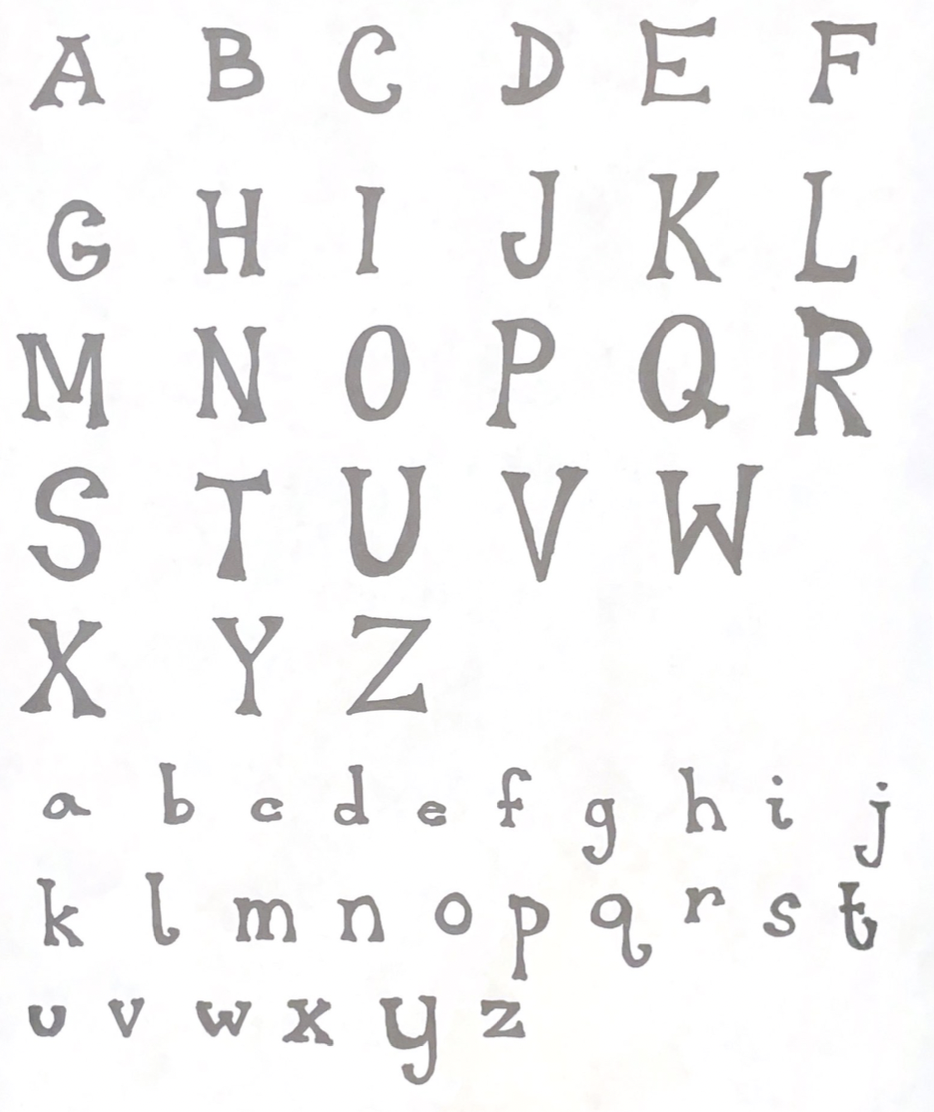 A B C D E F
G H I J K L
M N O P Q R
S T U V W
X Y Z
a b c d e f g h i j
k l m n o p q r s t
u v w x y z